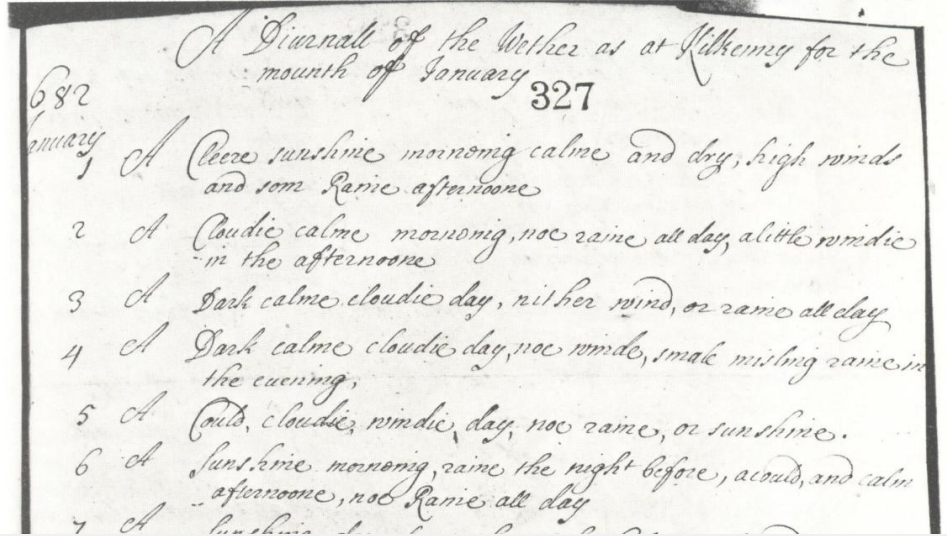 A Diurnall of the Wether as at Kilkenny for the
mounth of January
327
682
anuary
1 A Cleere sunshine mornonig calme and dry, high winds
and som Raine afternoone
2 A Cloudie calme mornonig, noe raine all day, a little windie
in the afternoone
3 A Dark calme cloudie day, nither wind, or raine all day
4 A Dark calme cloudie day, noe winde, smale misling raine in
the evening,
5 A Could, cloudie, windie, day, noe raine, or sunshine.
6 A Sunshine mornonig, raine the night before, a could, and calm
afternoone, noe Raine all day
7 A Sunshine